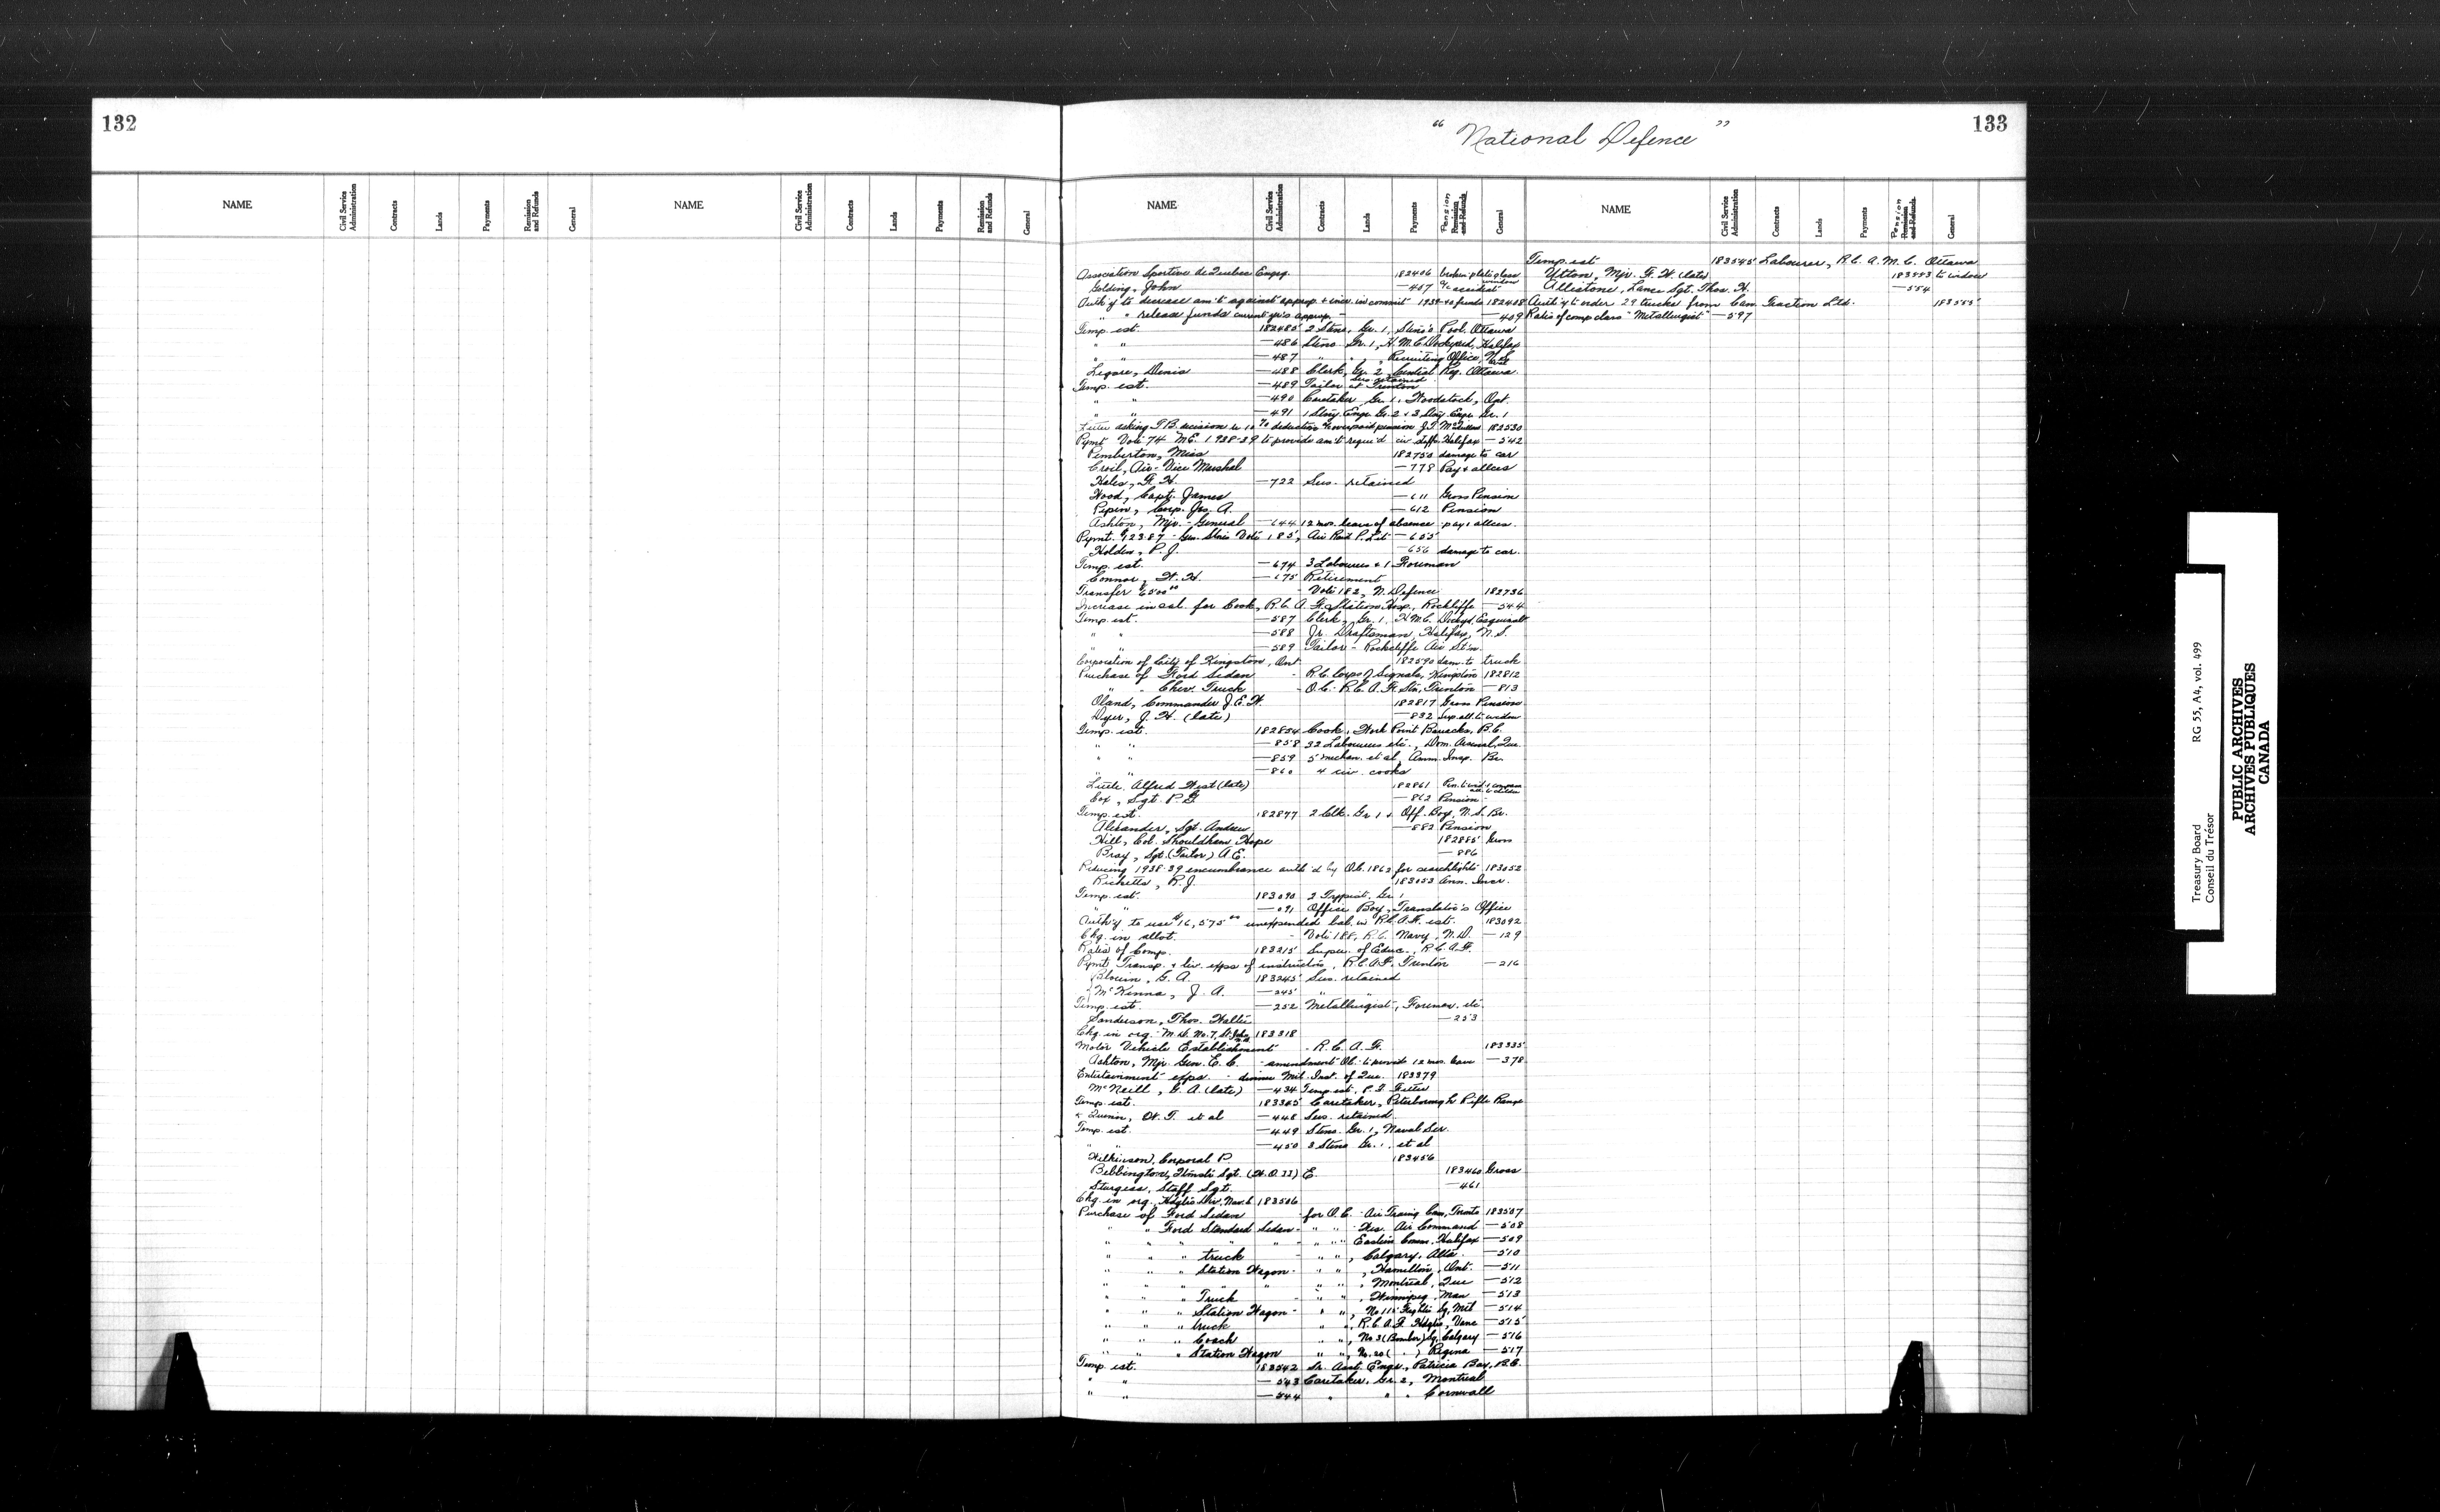 132
NAME Civil Service Administration Contracts Lands Payments Remission and Refunds General NAME Civil Service Administration Contracts Lands Payments Remission and Refunds General
"National Defence"
133
NAME Civil Service Administration Contracts Lands Payments Pension Remission and Refunds General NAME Civil Service Administration Contracts Lands Payments Pension Remission and Refunds General
Association Sportive de Quebec Engrg. 182406 broken plate glass window
Golding, John — 407 a/c accident
Auth'y to decrease am't against approp. & incr. in commit 1939-40 funds 182408
" " release funds current yr's approp. — 409
Temp. est. 182485 2 Steno, Gr. 1, Steno's Pool, Ottawa
" " — 486 Steno. Gr. 1, H.M.C. Dockyard, Halifax
" " — 487 " " " Recruiting Office, N.S.
Legare, Denis — 488 Clerk, Gr. 2, Central Reg. Ottawa.
Temp. est. — 489 Tailor at Trenton
" " — 490 Caretaker Gr. 1, Woodstock, Ont.
" " — 491 1 Staty. Engr. Gr. 2 & 3 Staty. Engr. Gr. 1
Letter asking T.B. decision re 10% deduction 182530
Pymt. Vote 74 M.E. 1938-39 to provide am't requi'd civ. staffs Halifax — 542
Pemberton, Miss 182750 damage to car
Croil, Air-Vice Marshal — 778 Pay & allces
Hales, F. H. — 722 Sus. retained
Wood, Capt. James — 611 Gross Pension
Pepin, Corp. Jos. A. — 612 Pension
Ashton, Mjr.-General — 644 12 mos. leave of absence pay & allces.
Pymt. $123.87 - Gen. Stores Vote 185, Air Raid P. Lit — 655
Holden, P. J. — 656 damage to car.
Temp. est. — 674 3 Labourers & 1 Foreman
Connor, W. H. — 675 Retirement
Transfer $6500.00 - Vote 182, N. Defence 182736
Increase in est. for Cook, R.C.A.F. Station Hosp., Rockcliffe — 544
Temp. est. — 587 Clerk, Gr. 1, H.M.C. Dockyd, Esquimalt
" " — 588 Jr. Draftsman, Halifax, N.S.
" " — 589 Tailor - Rockcliffe Air St'n.
Corporation of City of Kingston, Ont. 182590 dam. to truck
Purchase of Ford Sedan - R.C. Corps of Signals, Kingston 182812
" " Chev. Truck - O.C. R.C.A.F. Stn, Trenton — 813
Oland, Commander J. E. W. 182817 Gross Pension
Dyer, J. H. (late) — 832 Sep. all. to widow
Temp. est. 182854 Cook, Work Point Barracks, B.C.
" " — 858 32 Labourers etc., Dom. Arsenal, Que.
" " — 859 5 mechan. et al, Amm. Insp. Br.
" " — 860 4 civ. cooks
Little, Alfred West (late) 182861
Cox, Sgt. P. G. — 862 Pension
Temp. est. 182877 2 Clk. Gr 1 & Off. Boy, N.S. Br.
Alexander, Sgt. Andrew — 882 Pension
Hill, Col. Shouldham Hope 182885 Gross
Bray, Sgt. (Tailor) A. E. — 886
Reducing 1938-39 encumbrance auth'd by O.C. 1863 for searchlights 183052
Ricketts, R. J. 183053 Ann. Incr.
Temp. est. 183090 2 Typist, Gr. 1
" " — 091 Office Boy, Translator's Office
Auth'y to use $16,575.00 unexpended bal. in R.C.A.F. est. 183092
Chg. in allot. - Vote 188, R.C. Navy, N.D. — 129
Rates of Comp. 183215 Super. of Educ., R.C.A.F.
Pymt. Transp. & liv. exps of instructors, R.C.A.F., Trenton — 216
Blouin, G. A. 183245 Sus. retained
McKenna, J. A. — 245 " "
Temp. est. — 252 Metallurgist, Foreman, etc.
Sanderson, Thos. Walter — 253
Chg. in org. M.D. No. 7, St. John 183318
Motor Vehicle Establishment - R.C.A.F. 183335
Ashton, Mjr. Gen. E. C. - amendment O.C. to provide 12 mos. leave — 378
Entertainment exps. - dinner Mil. Inst. of Que. 183379
McNeill, G. A. (late) — 434 Temp. est. P.T. Fitter
Temp. est. 183385 Caretaker, Peterborough Rifle Range
Quinn, W. T. et al — 448 Sus. retained.
Temp. est. — 449 Steno. Gr. 1, Naval Ser.
" " — 450 3 Steno Gr. 1, et al
Wilkinson, Corporal P. 183456
Bebbington, Sgt. (W.O. II) E. 183460 Gross
Sturgess, Staff Sgt. — 461
Chg. in org., Hdqtrs Div., Nav. S. 183506
Purchase of Ford Sedan - for O.C. - Air Traing Com, Toronto 183507
" " Ford Standard Sedan - " " Wes. Air Command — 508
" " " " " - " " Eastern Comm. Halifax — 509
" " " truck - " ", Calgary, Alta. — 510
" " " Station Wagon - " ", Hamilton, Ont. — 511
" " " " " " ", Montreal, Que — 512
" " " Truck - " ", Winnipeg, Man — 513
" " " Station Wagon - " ", No 115 Fighter Sq, Mtl — 514
" " " truck " ", R.C.A.F. Hdqtrs, Vanc — 515
" " " Coach " ", No 3 (Bomber) Sq, Calgary — 516
" " " Station Wagon " ", No. 20 ( " ) Regina — 517
Temp. est. 183542 Sr. Asst. Engr., Patricia Bay, B.C.
" " — 543 Caretaker, Gr. 2, Montreal
" " — 544 " " " Cornwall
Temp. est 183545 Labourer, R.C.A.M.C. Ottawa
Utton, Mjr. F. W. (late) 183553 to widow
Allistone, Lance Sgt. Thos. H. — 554
Auth'y to order 29 trucks from Can. Traction Ltd. 183555
Rates of comp. class "Metallurgist" — 597
Treasury Board RG 55, A4, vol. 499
Conseil du Trésor
PUBLIC ARCHIVES
ARCHIVES PUBLIQUES
CANADA